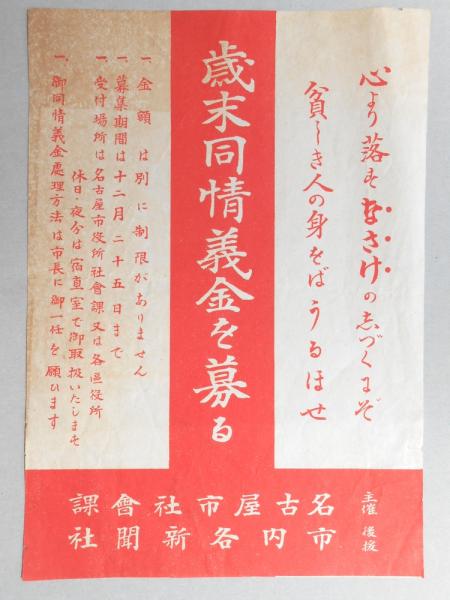 心より落すなさけの志づくまぞ
貧しき人の身をばうるほせ
歳末同情義金を募る
一、金額は別に制限がありません
一、募集期間は十二月二十五日まで
一、受付場所は名古屋市役所社會課又は各區役所
休日・夜分は宿直室で御取扱いたします
一、御同情義金處理方法は市長に御一任を願ひます
主催 名古屋市社會課
後援 市内各新聞社